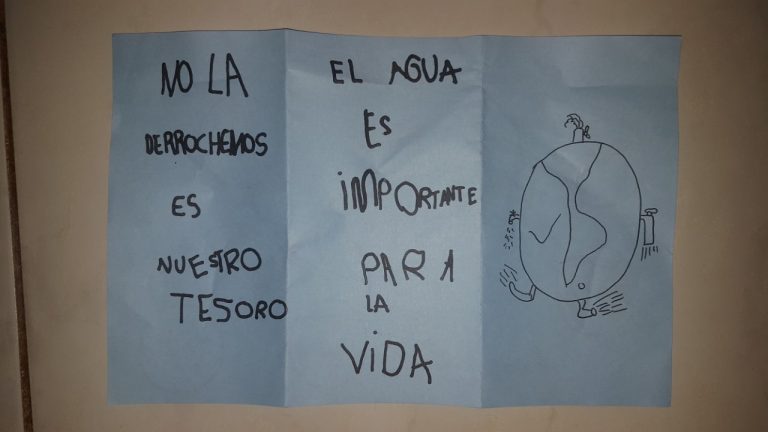 NO LA
DERROCHEMOS
ES
NUESTRO
TESORO
EL AGUA
ES
iMPORTANTE
PARA
LA
ViDA